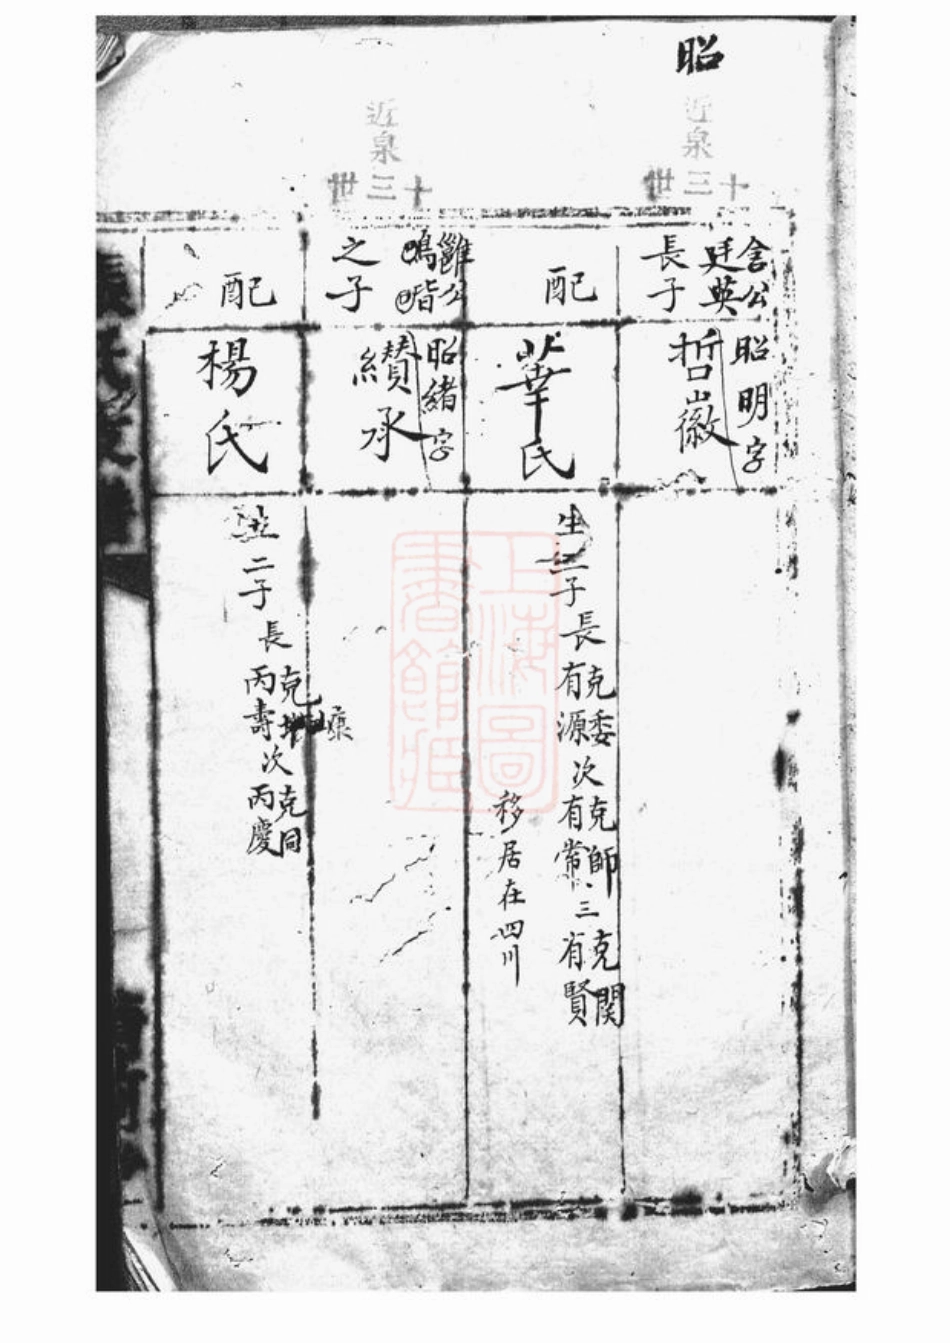 昭
近泉
十三世
舍公
廷英
長子
昭明字
哲徽
配
氏
生三子
長
克委
有源
次
克師
有常
三
克関
有賢
移居在四川
近泉
十三世
公
鳴
之子
昭緒字
纘承
配
楊氏
生二子
長
克
丙壽
次
克同
丙慶
上海圖
書館藏